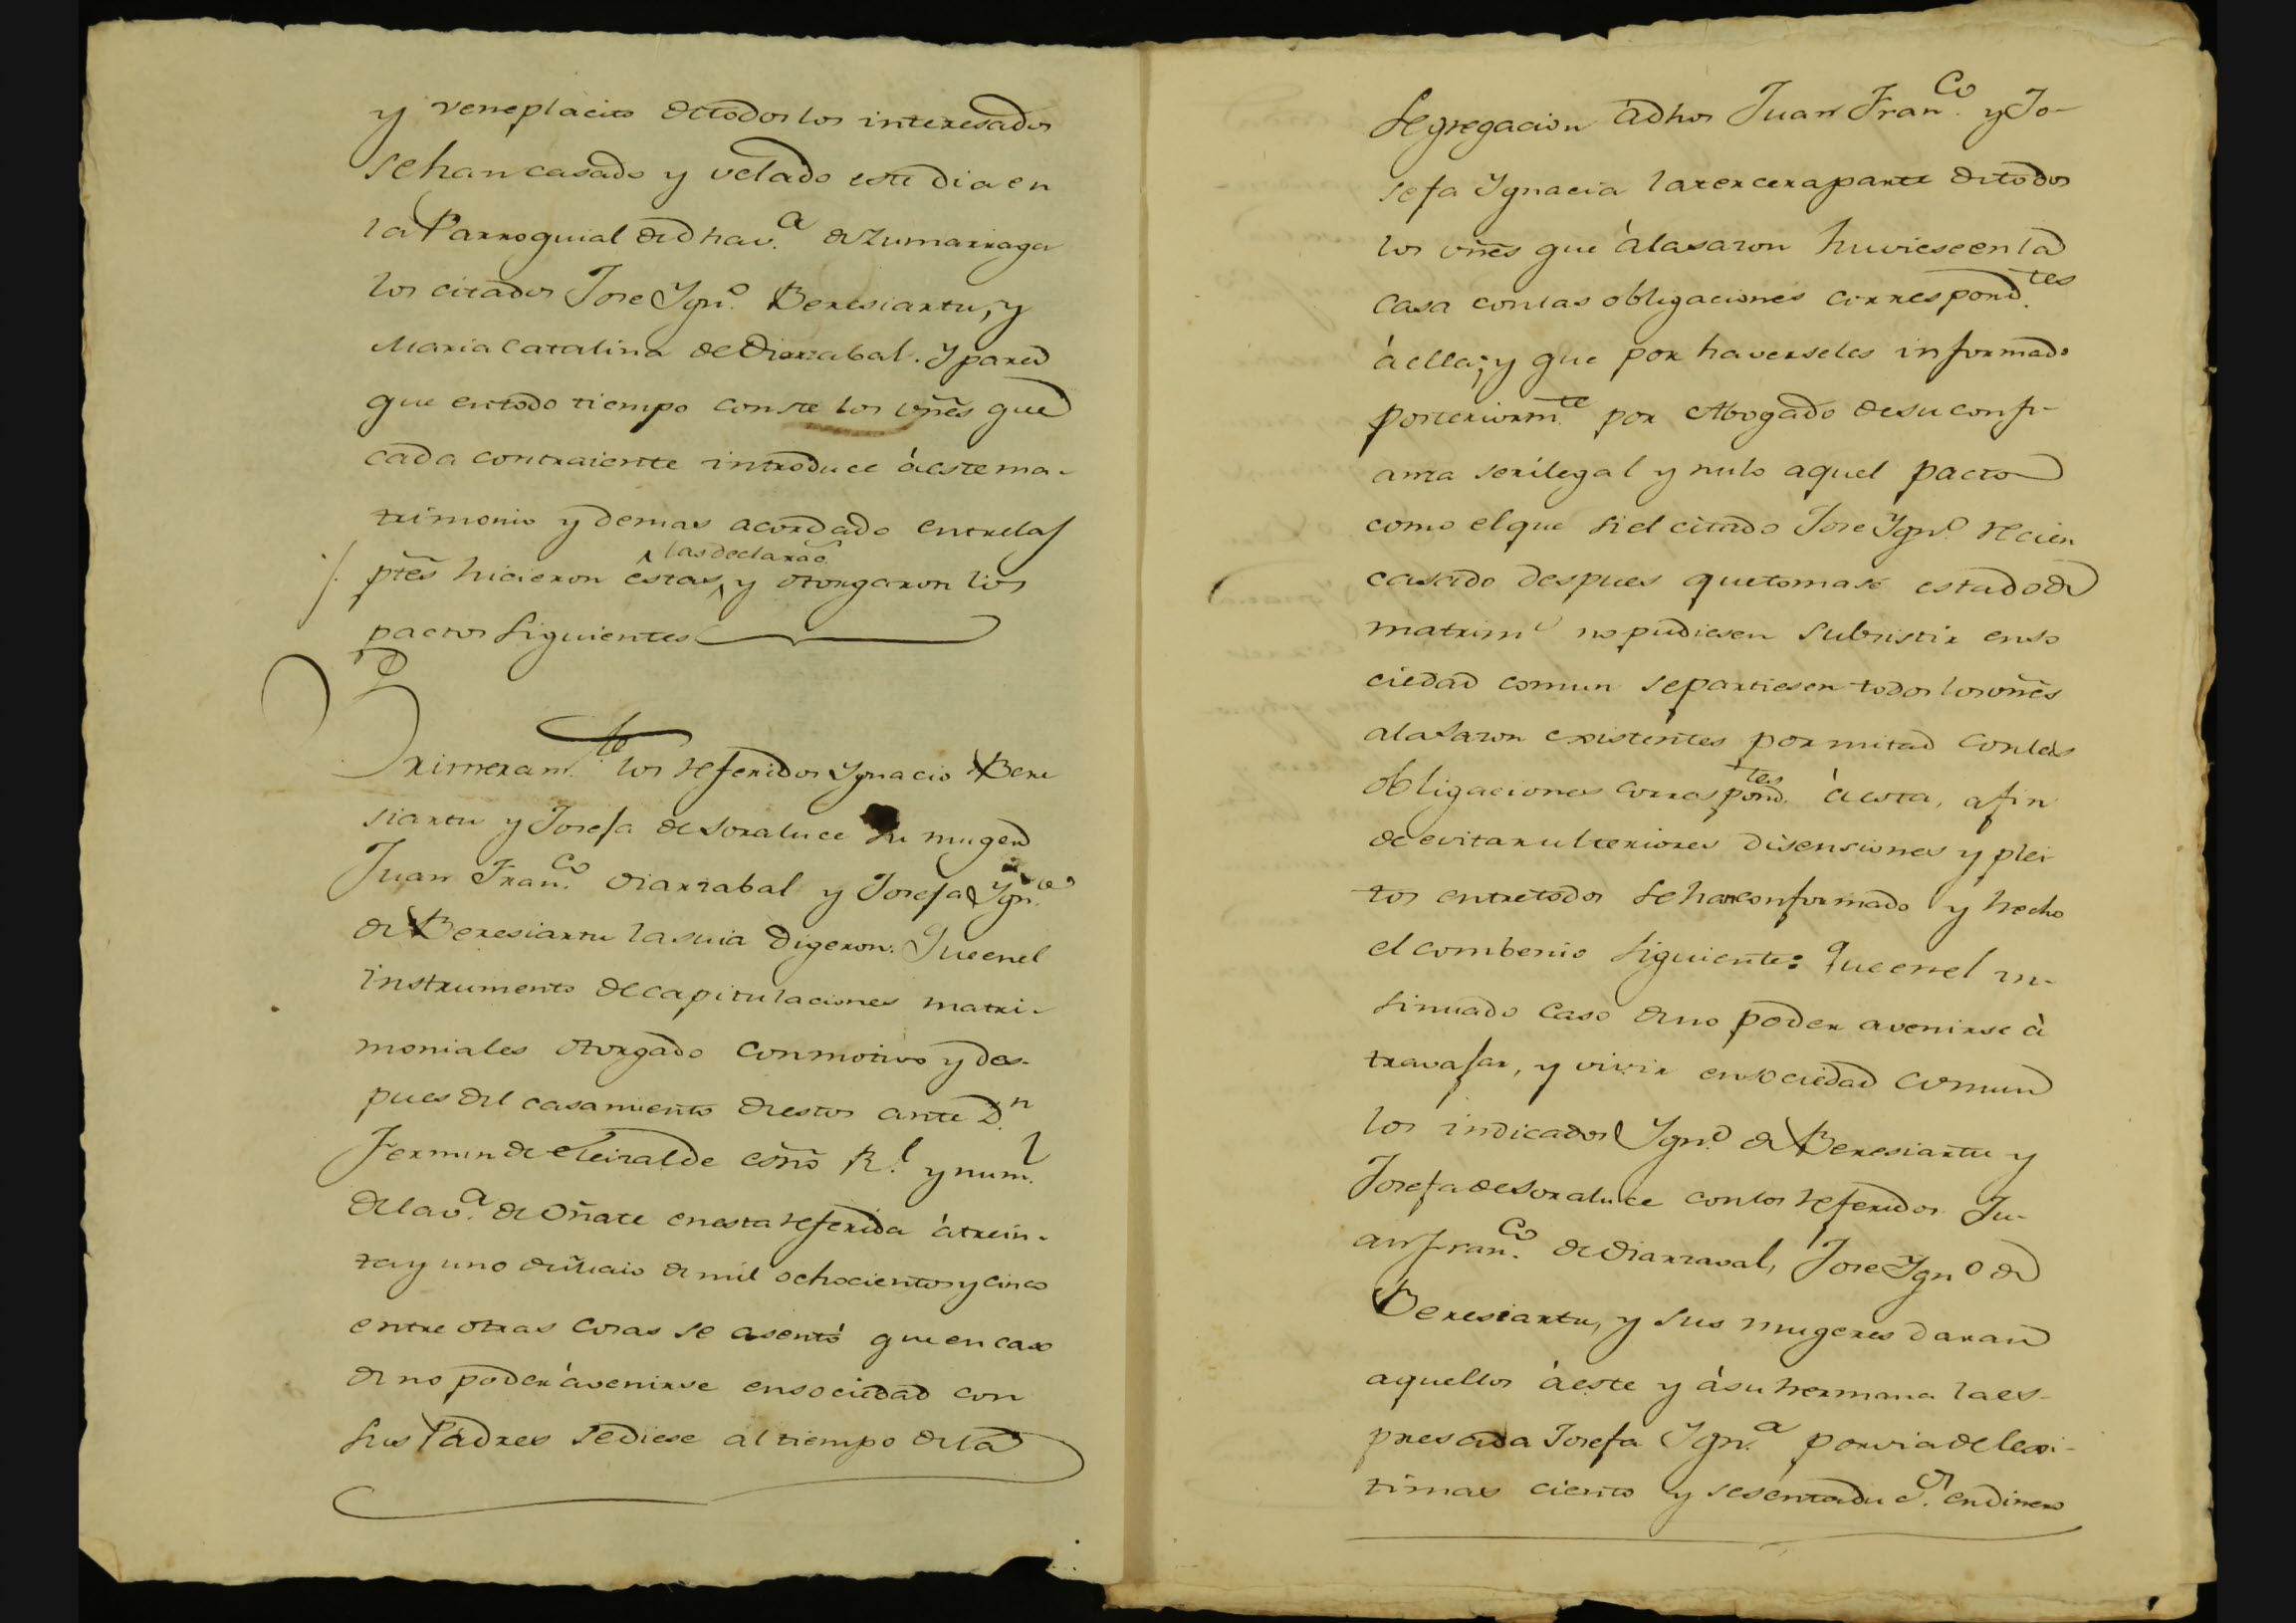 y veneplacito de todos los interesados
se han casado y velado este dia en
la Parroquial de dha v.ª de Zumarraga
los citados Jose Ygn.º Beresiartu, y
Maria Catalina de Diarzabal. Y para
que en todo tiempo conste los vñes que
cada contraiente introduce à este ma-
trimonio y demas acordado entre las
ptes hicieron estas las declarac.s y otorgaron los
pactos siguientes
Primeram.te los referidos Ygnacio Bere
siartu y Josefa de Soraluce su muger
Juan Fran.co Diarzabal y Josefa Ygn.cia
de Beresiartu la suia digeron: Que en el
instrumento de capitulaciones matri-
moniales otorgado con motivo y des-
pues del casamiento de estos ante D.n
Fermin de Leizalde esño R.l y num.l
de la v.ª de Oñate en esta referida à trein-
ta y uno de Maio de mil ochocientos y cinco
entre otras cosas se asentó que en caso
de no poder àvenirse en sociedad con
sus Padres se diese al tiempo de la
segregacion à dhos Juan Fran.co y Jo-
sefa Ygnacia la tercera parte de todos
los vñes que à la sazon huviese en la
casa con las obligaciones correspond.tes
à ella; y que por haverseles informado
posteriorm.te por Abogado de su confi-
anza ser ilegal y nulo aquel pacto
como el que si el citado Jose Ygn.º recien
casado despues que tomase estado de
matrim.º no pudiesen subsistir en so
ciedad comun se partiesen todos los vñes
a la sazon existentes por mitad con las
obligaciones correspond.tes à esta, a fin
de evitar ulteriores disensiones y plei-
tos entre todos se han conformado y hecho
el combenio siguiente: Que en el in-
sinuado caso de no poder avenirse à
travajar, y vivir en sociedad comun
los indicados Ygn.º de Beresiartu y
Josefa de Soraluce con los referidos Ju-
an Fran.co de Diarzaval, Jose Ygn.º de
Beresiartu, y sus mugeres daran
aquellos à este y à su hermana la es-
presada Josefa Ygn.ª por via de lexi-
timas ciento y sesenta duc.s en dinero